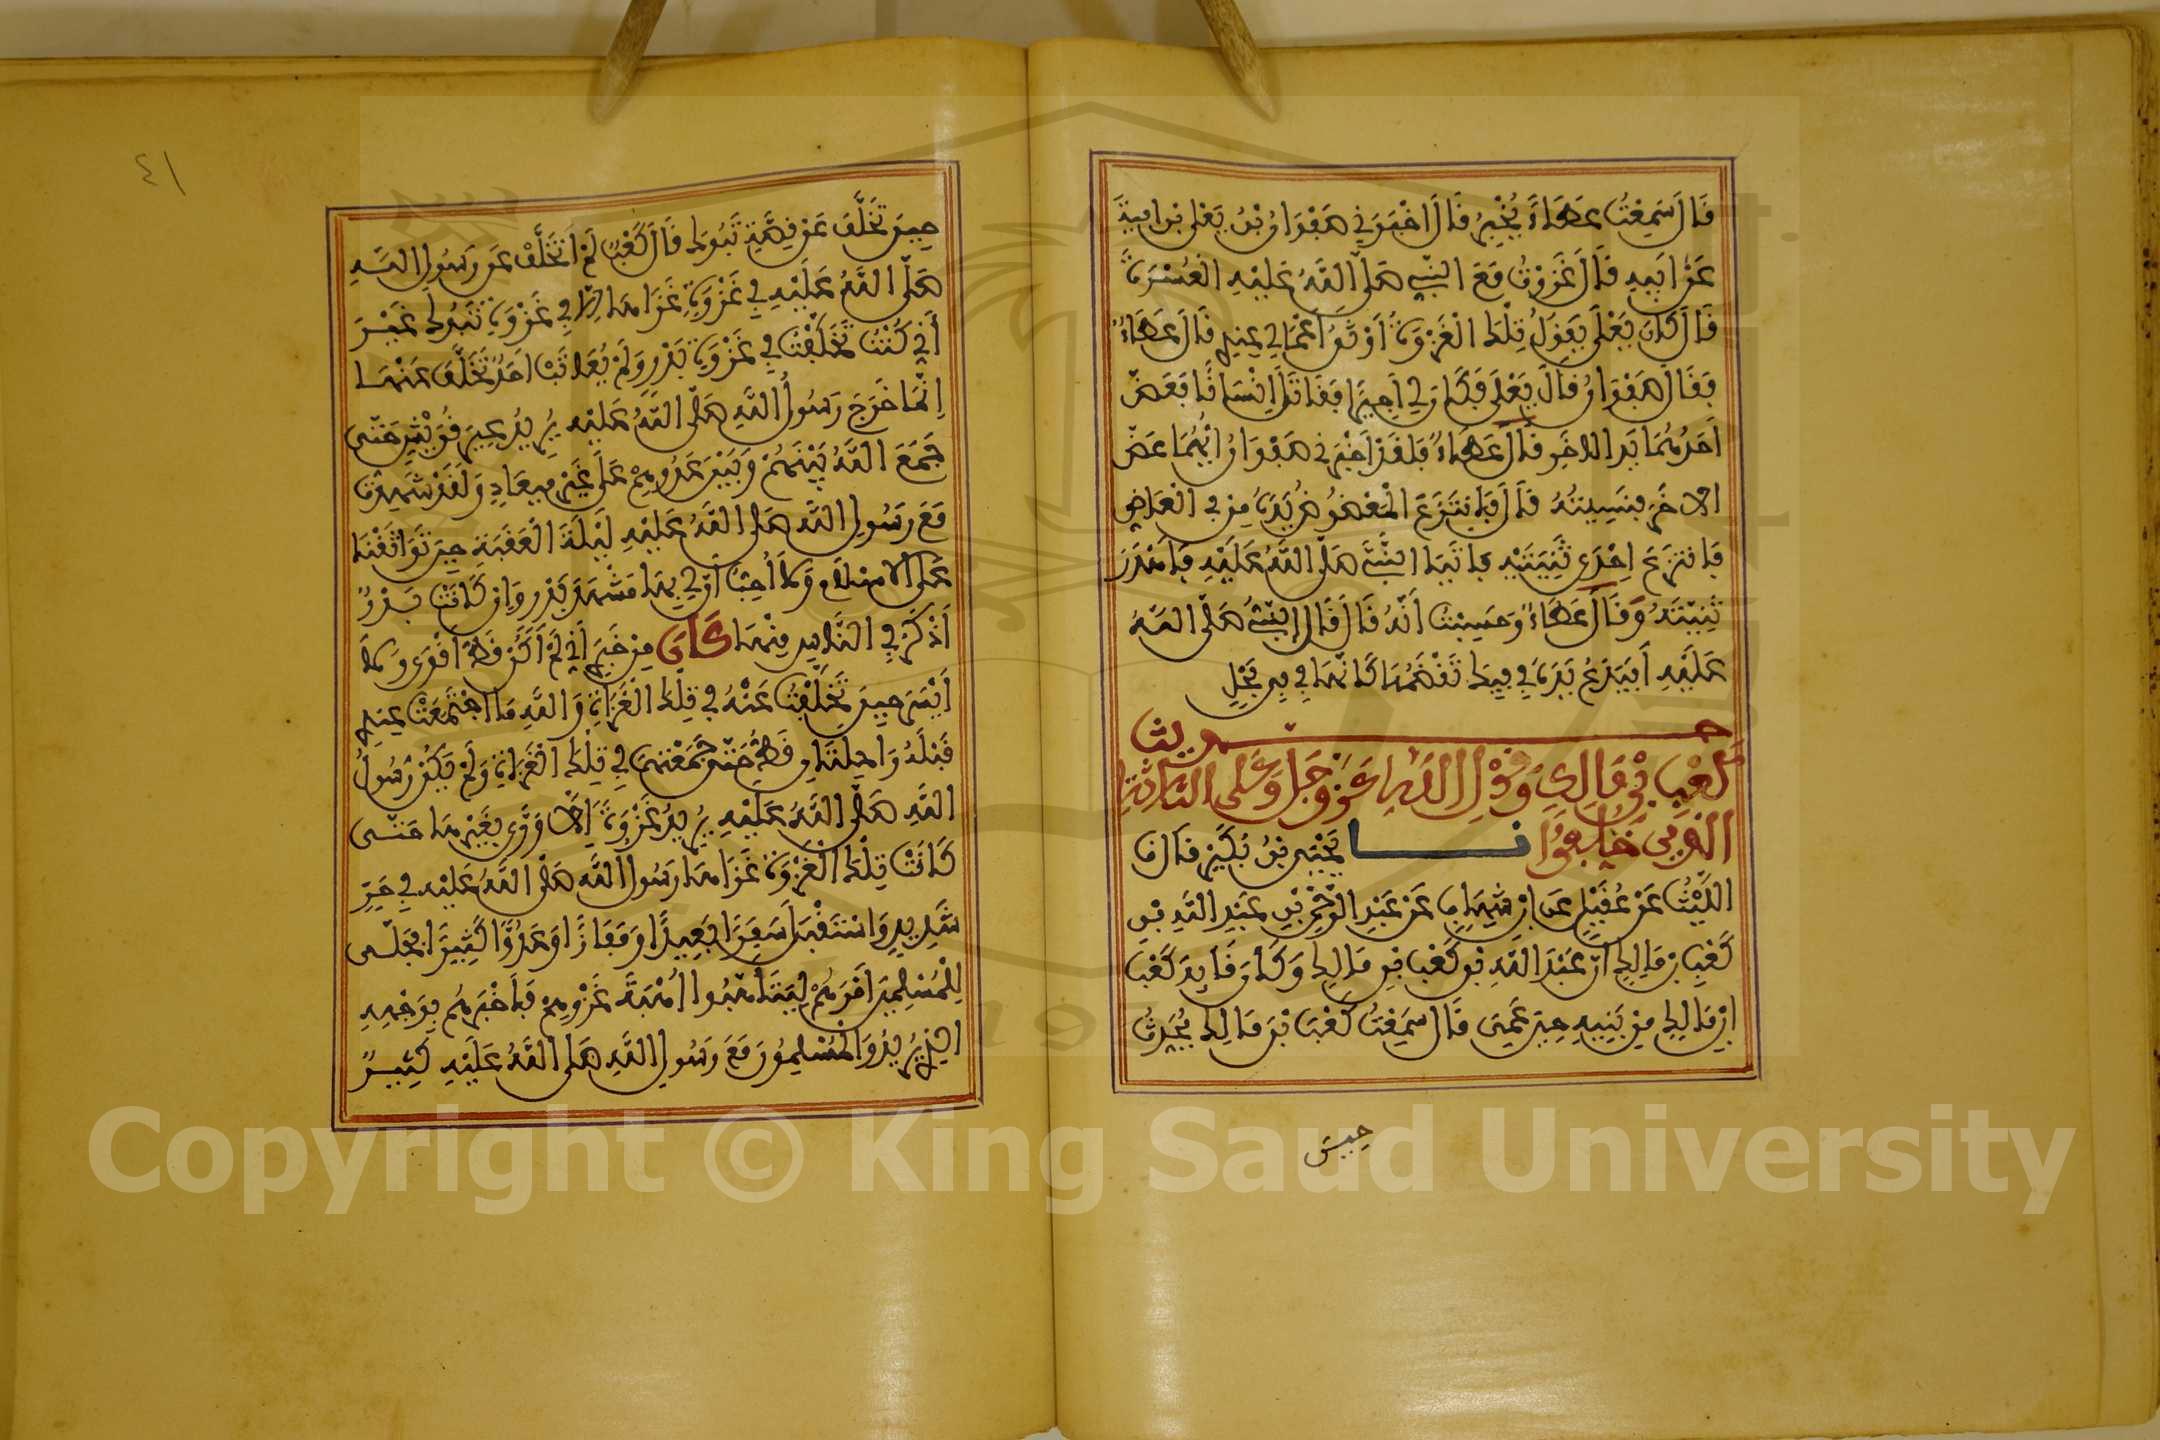 قَالَ سَمِعْتُ عَطَاءً يُخْبِرُ قَالَ أَخْبَرَنِي صَفْوَانُ بْنُ يَعْلَى بْنِ أُمَيَّةَ
عَنْ أَبِيهِ قَالَ غَزَوْتُ مَعَ النَّبِيِّ صَلَّى اللَّهُ عَلَيْهِ الْعُسْرَةَ
قَالَ كَانَ يَعْلَى يَقُولُ تِلْكَ الْغَزْوَةُ أَوْثَقُ أَعْمَالِي عِنْدِي قَالَ عَطَاءٌ
فَقَالَ صَفْوَانُ قَالَ يَعْلَى فَكَانَ لِي أَجِيرٌ فَقَاتَلَ إِنْسَانًا فَعَضَّ
أَحَدُهُمَا يَدَ الْآخَرِ قَالَ عَطَاءٌ فَلَقَدْ أَخْبَرَنِي صَفْوَانُ أَيُّهُمَا عَضَّ
الْآخَرَ فَنَسِيتُهُ قَالَ فَانْتَزَعَ الْمَعْضُوضُ يَدَهُ مِنْ فِي الْعَاضِّ
فَانْتَزَعَ إِحْدَى ثَنِيَّتَيْهِ فَأَتَيَا النَّبِيَّ صَلَّى اللَّهُ عَلَيْهِ فَأَهْدَرَ
ثَنِيَّتَهُ وَقَالَ عَطَاءٌ وَحَسِبْتُ أَنَّهُ قَالَ قَالَ النَّبِيُّ صَلَّى اللَّهُ
عَلَيْهِ أَفَيَدَعُ يَدَهُ فِي فِيكَ تَقْضَمُهَا كَأَنَّهَا فِي فِي فَحْلٍ
حديث
كَعْبِ بْنِ مَالِكٍ وَقَوْلِ اللَّهِ عَزَّ وَجَلَّ وَعَلَى الثَّلَاثَةِ
الَّذِينَ خُلِّفُوا نا يَحْيَى بْنُ بُكَيْرٍ قَالَ نا
اللَّيْثُ عَنْ عُقَيْلٍ عَنِ ابْنِ شِهَابٍ عَنْ عَبْدِ الرَّحْمٰنِ بْنِ عَبْدِ اللَّهِ بْنِ
كَعْبِ بْنِ مَالِكٍ أَنَّ عَبْدَ اللَّهِ بْنَ كَعْبِ بْنِ مَالِكٍ وَكَانَ قَائِدَ كَعْبِ
ابْنِ مَالِكٍ مِنْ بَنِيهِ حِينَ عَمِيَ قَالَ سَمِعْتُ كَعْبَ بْنَ مَالِكٍ يُحَدِّثُ
حِينَ
٤١
حِينَ تَخَلَّفَ عَنْ قِصَّةِ تَبُوكَ قَالَ كَعْبٌ لَمْ أَتَخَلَّفْ عَنْ رَسُولِ اللَّهِ
صَلَّى اللَّهُ عَلَيْهِ فِي غَزْوَةٍ غَزَاهَا إِلَّا فِي غَزْوَةِ تَبُوكَ غَيْرَ
أَنِّي كُنْتُ تَخَلَّفْتُ فِي غَزْوَةِ بَدْرٍ وَلَمْ يُعَاتَبْ أَحَدٌ تَخَلَّفَ عَنْهَا
إِنَّمَا خَرَجَ رَسُولُ اللَّهِ صَلَّى اللَّهُ عَلَيْهِ يُرِيدُ عِيرَ قُرَيْشٍ حَتَّى
جَمَعَ اللَّهُ بَيْنَهُمْ وَبَيْنَ عَدُوِّهِمْ عَلَى غَيْرِ مِيعَادٍ وَلَقَدْ شَهِدْتُ
مَعَ رَسُولِ اللَّهِ صَلَّى اللَّهُ عَلَيْهِ لَيْلَةَ الْعَقَبَةِ حِينَ تَوَاثَقْنَا
عَلَى الْإِسْلَامِ وَمَا أُحِبُّ أَنَّ لِي بِهَا مَشْهَدَ بَدْرٍ وَإِنْ كَانَتْ بَدْرٌ
أَذْكَرَ فِي النَّاسِ مِنْهَا كَانَ مِنْ خَبَرِي أَنِّي لَمْ أَكُنْ قَطُّ أَقْوَى وَلَا
أَيْسَرَ حِينَ تَخَلَّفْتُ عَنْهُ فِي تِلْكَ الْغَزَاةِ وَاللَّهِ مَا اجْتَمَعَتْ عِنْدِي
قَبْلَهُ رَاحِلَتَانِ قَطُّ حَتَّى جَمَعْتُهُمَا فِي تِلْكَ الْغَزَاةِ وَلَمْ يَكُنْ رَسُولُ
اللَّهِ صَلَّى اللَّهُ عَلَيْهِ يُرِيدُ غَزْوَةً إِلَّا وَرَّى بِغَيْرِهَا حَتَّى
كَانَتْ تِلْكَ الْغَزْوَةُ غَزَاهَا رَسُولُ اللَّهِ صَلَّى اللَّهُ عَلَيْهِ فِي حَرٍّ
شَدِيدٍ وَاسْتَقْبَلَ سَفَرًا بَعِيدًا وَمَفَازًا وَعَدُوًّا كَثِيرًا فَجَلَّى
لِلْمُسْلِمِينَ أَمْرَهُمْ لِيَتَأَهَّبُوا أُهْبَةَ غَزْوِهِمْ فَأَخْبَرَهُمْ بِوَجْهِهِ
الَّذِي يُرِيدُ وَالْمُسْلِمُونَ مَعَ رَسُولِ اللَّهِ صَلَّى اللَّهُ عَلَيْهِ كَثِيرٌ
Copyright © King Saud University